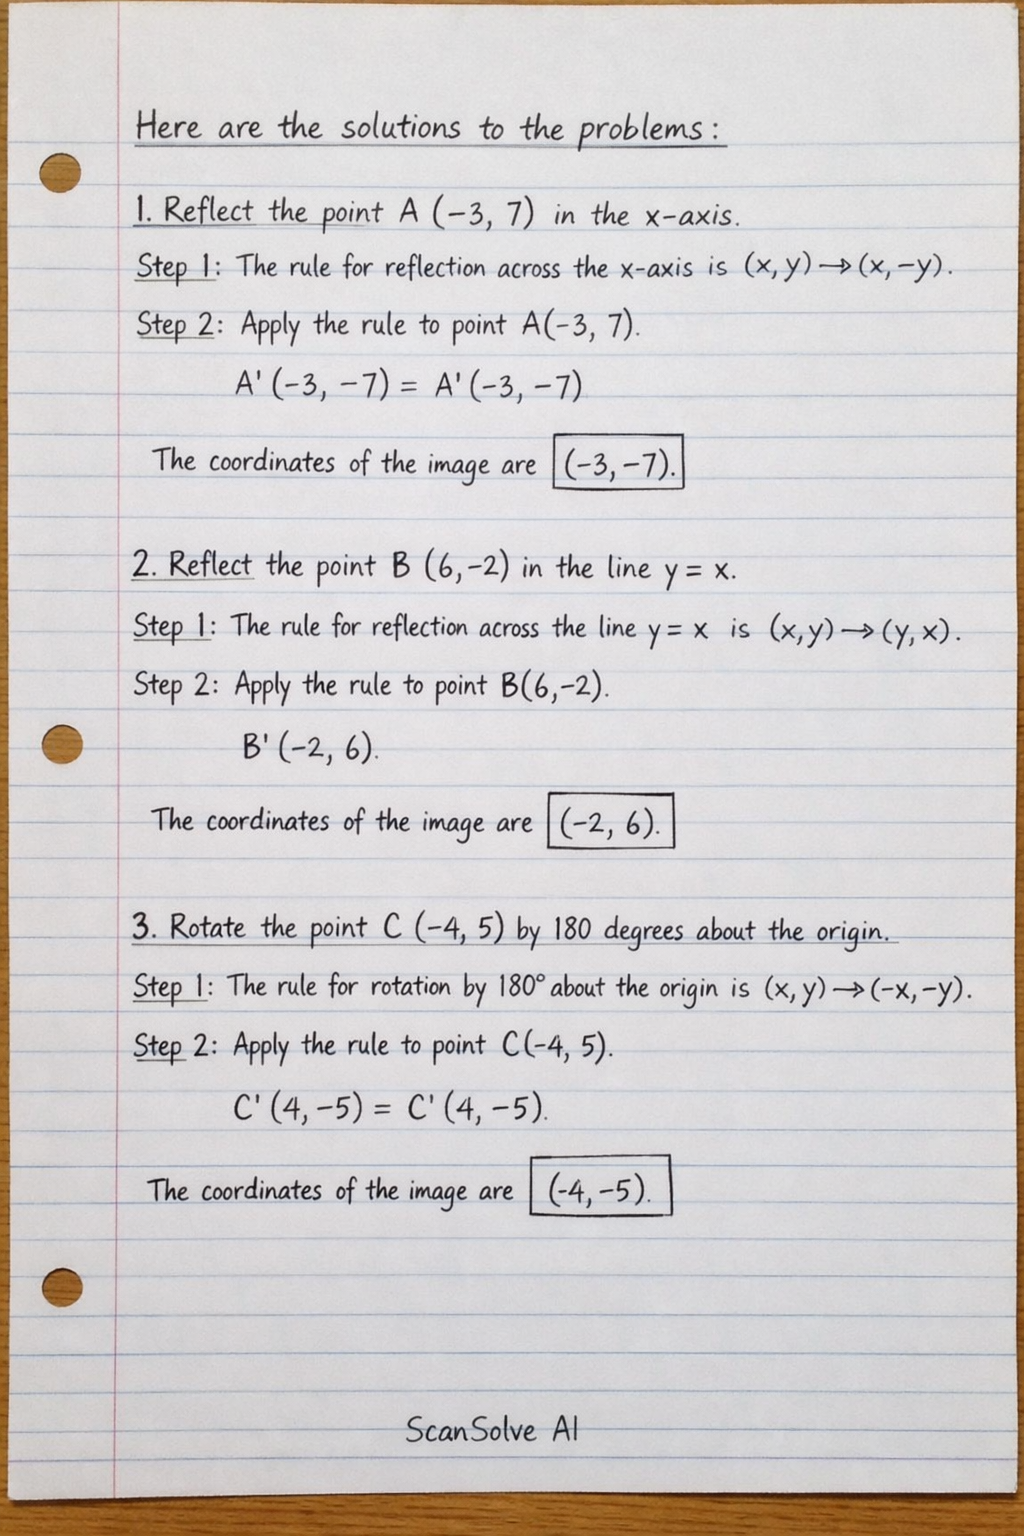 Here are the solutions to the problems:
1. Reflect the point A (-3, 7) in the x-axis.
Step 1: The rule for reflection across the x-axis is (x, y) → (x, -y).
Step 2: Apply the rule to point A(-3, 7).
A' (-3, -7) = A' (-3, -7)
The coordinates of the image are (-3, -7).
2. Reflect the point B (6, -2) in the line y = x.
Step 1: The rule for reflection across the line y = x is (x, y) → (y, x).
Step 2: Apply the rule to point B(6, -2).
B' (-2, 6).
The coordinates of the image are (-2, 6).
3. Rotate the point C (-4, 5) by 180 degrees about the origin.
Step 1: The rule for rotation by 180° about the origin is (x, y) → (-x, -y).
Step 2: Apply the rule to point C(-4, 5).
C' (4, -5) = C' (4, -5).
The coordinates of the image are (-4, -5).
ScanSolve AI